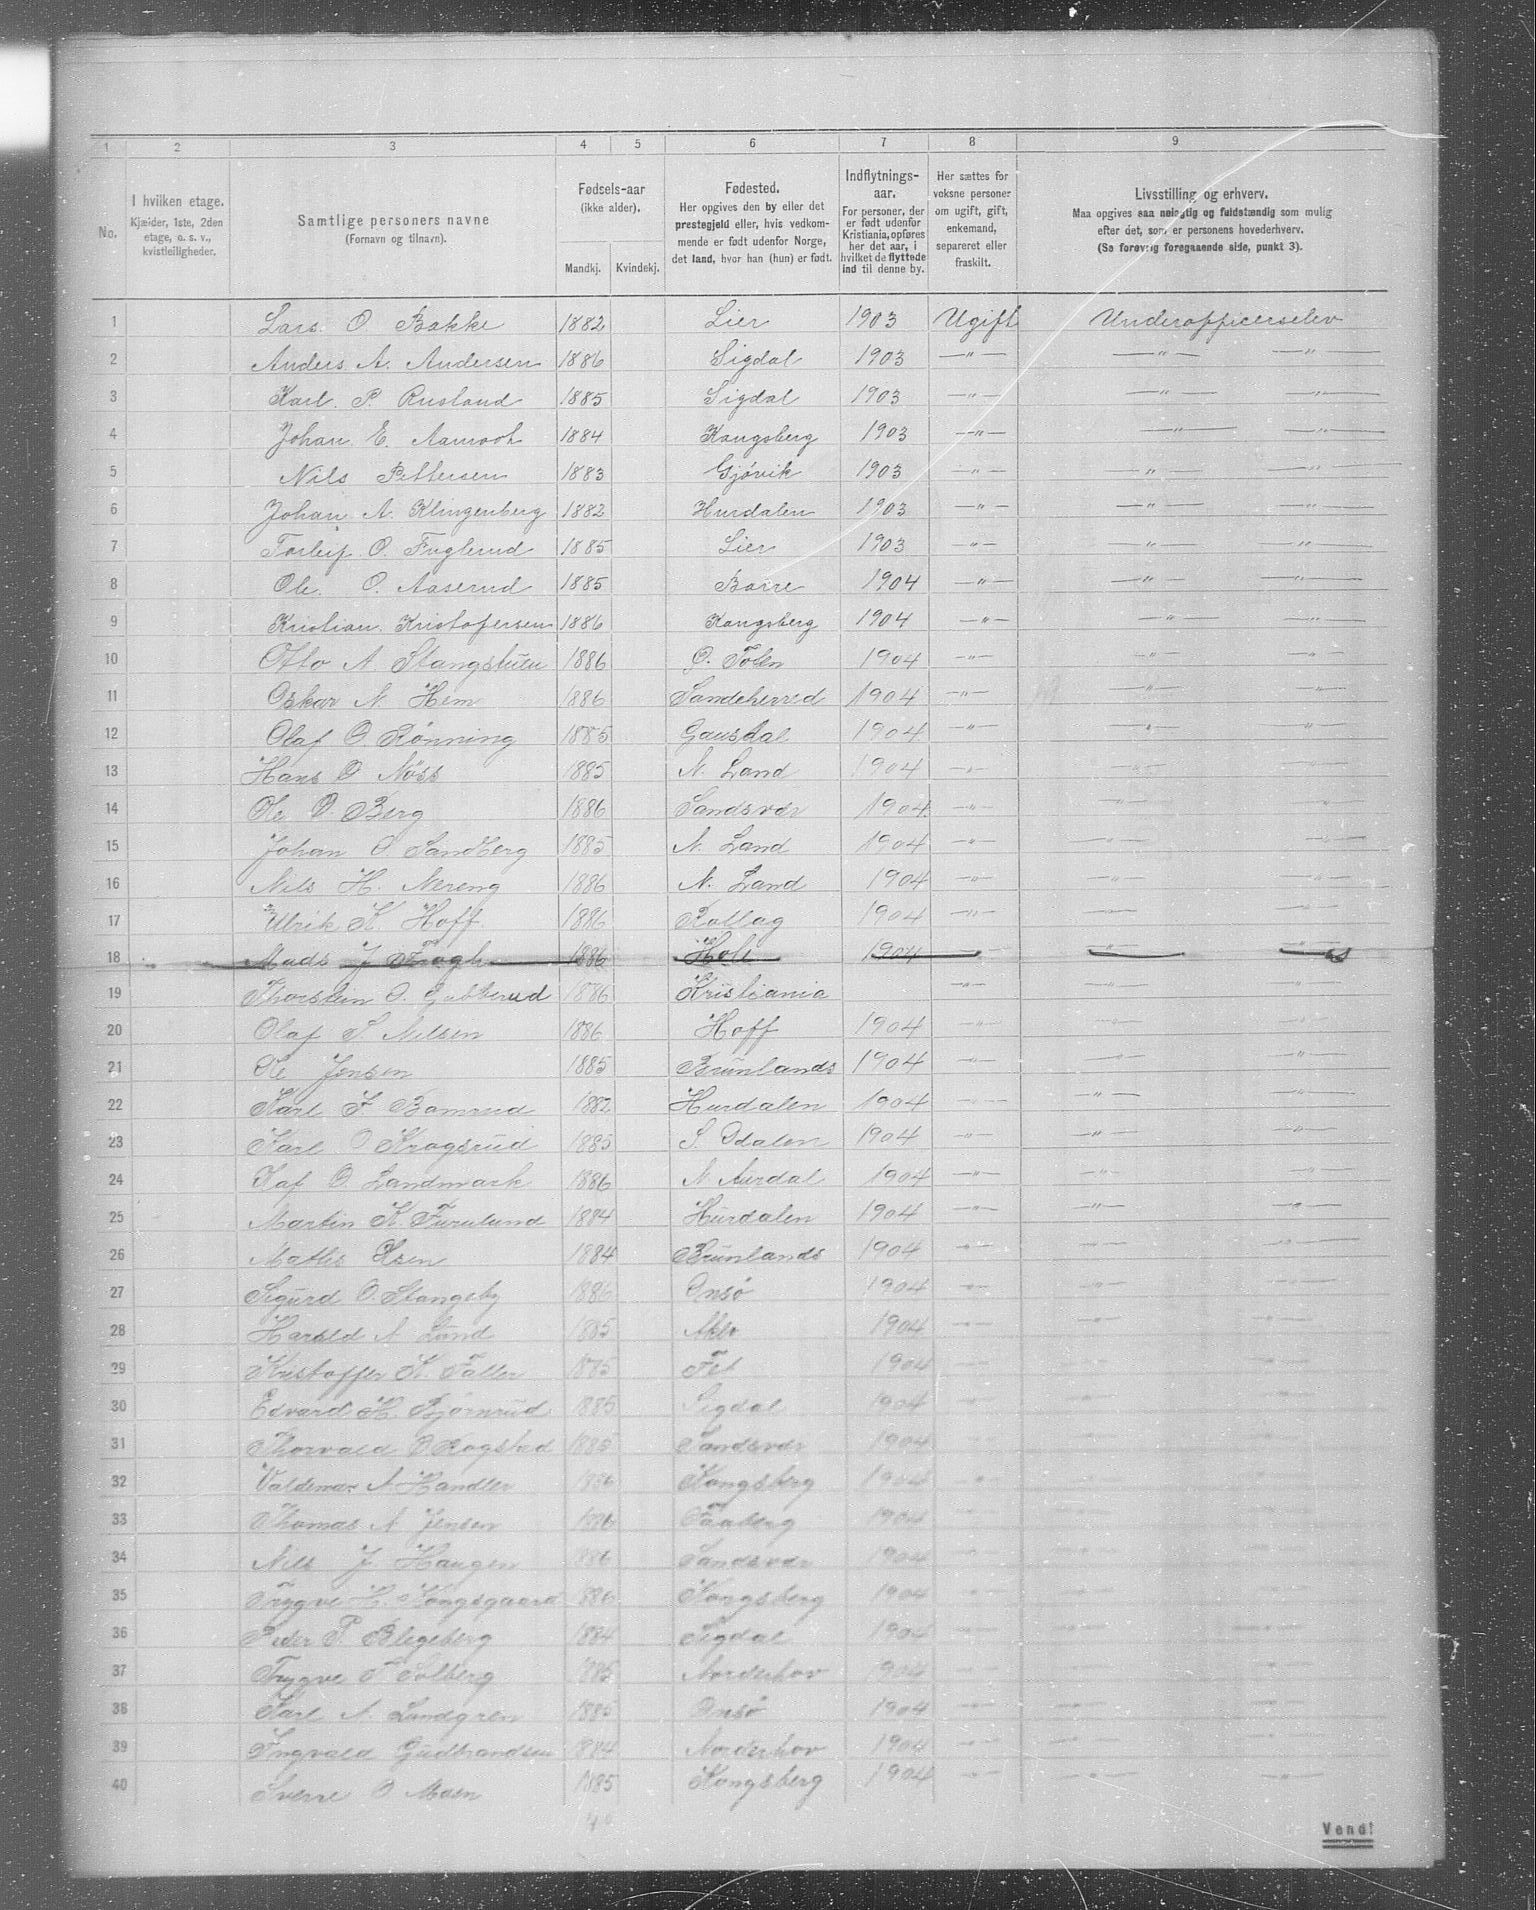 1 2 3 4 5 6 7 8 9
No.
I hvilken etage.
Kjælder, 1ste, 2den
etage, o. s. v.,
kvistleiligheder.
Samtlige personers navne
(Fornavn og tilnavn).
Fødsels-aar
(ikke alder).
Mandkj. Kvindekj.
Fødested.
Her opgives den by eller det
prestegjeld eller, hvis vedkom-
mende er født udenfor Norge,
det land, hvor han (hun) er født.
Indflytnings-
aar.
For personer, der
er født udenfor
Kristiania, opføres
her det aar, i
hvilket de flyttede
ind til denne by.
Her sættes for
voksne personer
om ugift, gift,
enkemand,
separeret eller
fraskilt.
Livsstilling og erhverv.
Maa opgives saa nøiagtig og fuldstændig som mulig
efter det, som er personens hovederhverv.
(Se forøvrig foregaaende side, punkt 3).
1 Lars O Bakke 1882 Lier 1903 Ugift Underofficerselev
2 Anders A. Andersen 1886 Sigdal 1903 —"— —"— —"—
3 Karl P. Rusland 1885 Sigdal 1903 —"— —"— —"—
4 Johan E. Aamoot 1884 Kongsberg 1903 —"— —"— —"—
5 Nils Pettersen 1883 Gjøvik 1903 —"— —"— —"—
6 Johan A. Klingenberg 1882 Hurdalen 1903 —"— —"— —"—
7 Torleif O. Fuglerud 1885 Lier 1903 —"— —"— —"—
8 Ole O. Aaserud 1885 Borre 1904 —"— —"— —"—
9 Kristian Kristofersen 1886 Kongsberg 1904 —"— —"— —"—
10 Otto A Stangstuen 1886 Ø. Toten 1904 —"— —"— —"—
11 Oskar N. Hem 1886 Sandeherred 1904 —"— —"— —"—
12 Olaf O. Rønning 1885 Gausdal 1904 —"— —"— —"—
13 Hans O Nøss 1885 N. Land 1904 —"— —"— —"—
14 Ole O. Berg 1886 Sandsvær 1904 —"— —"— —"—
15 Johan O Sandberg 1885 N. Land 1904 —"— —"— —"—
16 Nils H. Nereng 1886 N. Land 1904 —"— —"— —"—
17 Ulrik K Hoff 1886 Rollag 1904 —"— —"— —"—
18 Mads J Fragh 1886 Hole 1904 — —"— —"—
19 Thorstein O. Gubberud 1886 Kristiania —"— —"— —"—
20 Olaf S Nilsen 1886 Hoff 1904 —"— —"— —"—
21 Ole Jensen 1885 Brunlands 1904 —"— —"— —"—
22 Karl F Bamrud 1882 Hurdalen 1904 —"— —"— —"—
23 Karl O Kragsrud 1885 S. Odalen 1904 —"— —"— —"—
24 O. Landmark 1886 N Aurdal 1904 —"— —"— —"—
25 Martin K. Furulund 1884 Hurdalen 1904 —"— —"— —"—
26 Mathis Olsen 1884 Brunlands 1904 —"— —"— —"—
27 Sigurd O. Stangeby 1886 Onsø 1904 —"— —"— —"—
28 Harald A Lund 1885 Aker 1904 —"— —"— —"—
29 Kristoffer K. Faller 1885 Fet 1904 —"— —"— —"—
30 Edvard H. Bjørnrud 1885 Sigdal 1904 —"— —"— —"—
31 Thorvald O Rogstad 1885 Sandsvær 1904 —"— —"— —"—
32 Valdemar A Handler 1886 Kongsberg 1904 —"— —"— —"—
33 Thomas A Jensen 1886 Faaberg 1904 —"— —"— —"—
34 Nils J Haugen 1886 Sandsvær 1904 —"— —"— —"—
35 Trygve H. Kongsgaard 1886 Kongsberg 1904 —"— —"— —"—
36 Peder P. Blegeberg 1884 Sigdal 1904 —"— —"— —"—
37 Trygve Solberg 1885 Norderhov 1904 —"— —"— —"—
38 Karl A. Lundgren 1885 Onsø 1904 —"— —"— —"—
39 Ingvald Gudbrandsen 1884 Norderhov 1904 —"— —"— —"—
40 Sverre O Moen 1885 Kongsberg 1904 —"— —"— —"—
Vend!